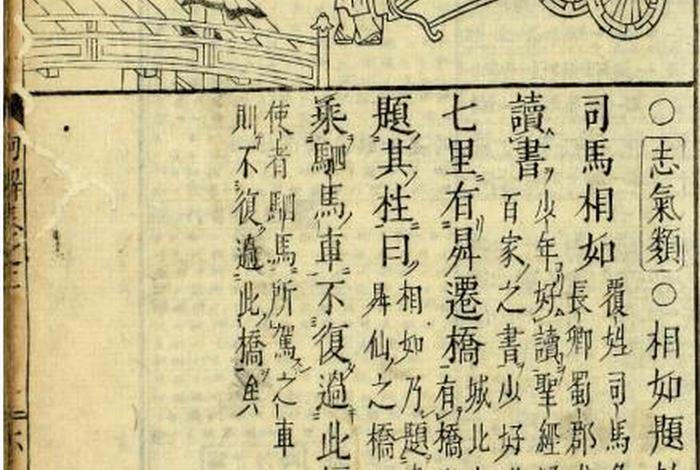 ○志氣類○相如題
司馬相如
覆姓司馬
長卿蜀郡
讀書
少年好讀聖經
百家之書少好
七里有昇遷橋
城北
有橋
題其柱曰
相如乃題
昇仙之橋
乘駟馬車不復過此
使者駟馬所駕之車
則不復過此橋矣